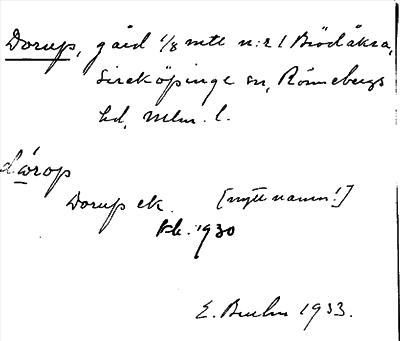 Dorup, gård 1/8 mtl n:r 1 Brödåkra,
Sireköpinge sn, Rönnebergs
hd, Mlm. l.
dẃrop
Dorup ek. [nytt namn!]
Fk. 1930
E. Bruhn 1933.